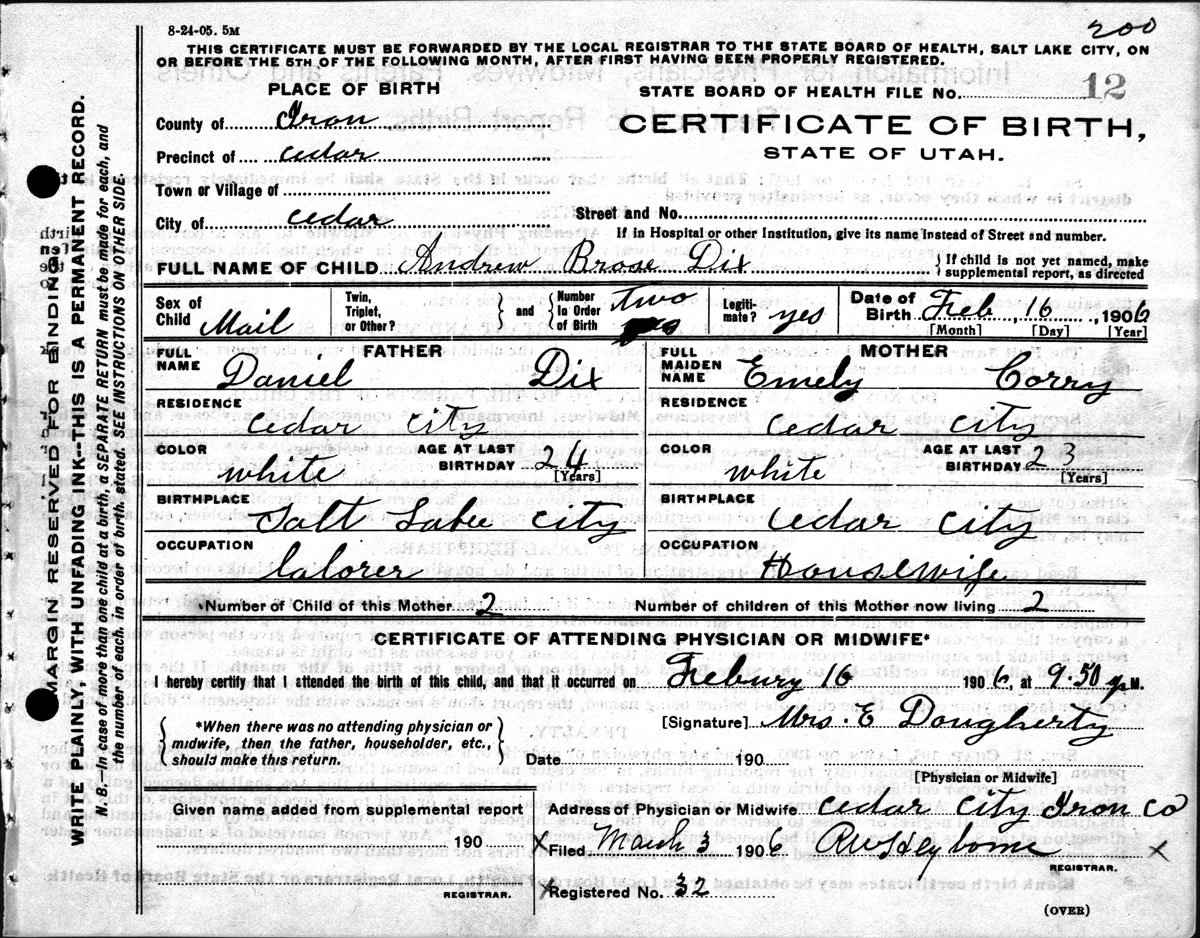 8-24-05. 5M
200
THIS CERTIFICATE MUST BE FORWARDED BY THE LOCAL REGISTRAR TO THE STATE BOARD OF HEALTH, SALT LAKE CITY, ON
OR BEFORE THE 5TH OF THE FOLLOWING MONTH, AFTER FIRST HAVING BEEN PROPERLY REGISTERED.
PLACE OF BIRTH
STATE BOARD OF HEALTH FILE No. 12
County of Iron
CERTIFICATE OF BIRTH,
Precinct of cedar
STATE OF UTAH.
Town or Village of
City of cedar
Street and No.
If in Hospital or other Institution, give its name instead of Street and number.
FULL NAME OF CHILD Andrew Brose Dix
If child is not yet named, make
supplemental report, as directed
Sex of Child Mail
Twin, Triplet, or Other?
and
Number in Order of Birth two
Legiti-mate? yes
Date of Birth Feb 16, 1906
[Month] [Day] [Year]
FATHER
FULL NAME Daniel Dix
RESIDENCE
cedar city
COLOR white
AGE AT LAST BIRTHDAY 24
[Years]
BIRTHPLACE
Salt Labe city
OCCUPATION
laborer
MOTHER
FULL MAIDEN NAME Emely Corry
RESIDENCE
cedar city
COLOR white
AGE AT LAST BIRTHDAY 23
[Years]
BIRTHPLACE
cedar city
OCCUPATION
Housewife
Number of Child of this Mother 2
Number of children of this Mother now living 2
CERTIFICATE OF ATTENDING PHYSICIAN OR MIDWIFE*
I hereby certify that I attended the birth of this child, and that it occurred on Febury 16 1906, at 9.50 p M.
*When there was no attending physician or
midwife, then the father, householder, etc.,
should make this return.
[Signature] Mrs. E Dougherty
Date 190
[Physician or Midwife]
Given name added from supplemental report
190
REGISTRAR.
Address of Physician or Midwife cedar city Iron co
X Filed March 3 1906
X
REGISTRAR.
X Registered No. 32
(OVER)
MARGIN RESERVED FOR BINDING
WRITE PLAINLY, WITH UNFADING INK--THIS IS A PERMANENT RECORD.
N. B.—In case of more than one child at a birth, a SEPARATE RETURN must be made for each, and
the number of each, in order of birth, stated. SEE INSTRUCTIONS ON OTHER SIDE.